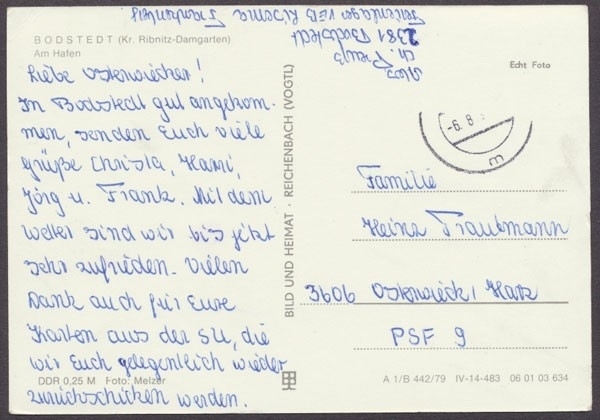 BODSTEDT (Kr. Ribnitz-Damgarten)
Am Hafen
Liebe Osterwiecker!
In Bodstedt gut angekom-
men, senden Euch viele
Grüße Christa, Hanni,
Jörg u. Frank. Mit dem
Wetter sind wir bis jetzt
sehr zufrieden. Vielen
Dank auch für Eure
Karten aus der SU, die
wir Euch gelegentlich wieder
zurückschicken werden.
DDR 0,25 M Foto: Melzer
BILD UND HEIMAT · REICHENBACH (VOGTL)
Abs
Ch. Preuß
2381 Bodstedt
Ferienlager VEB
Echt Foto
-6. 8.
m
Familie
Heinz Trautmann
3606 Osterwieck / Harz
PSF 9
A 1/B 442/79 IV-14-483 06 01 03 634